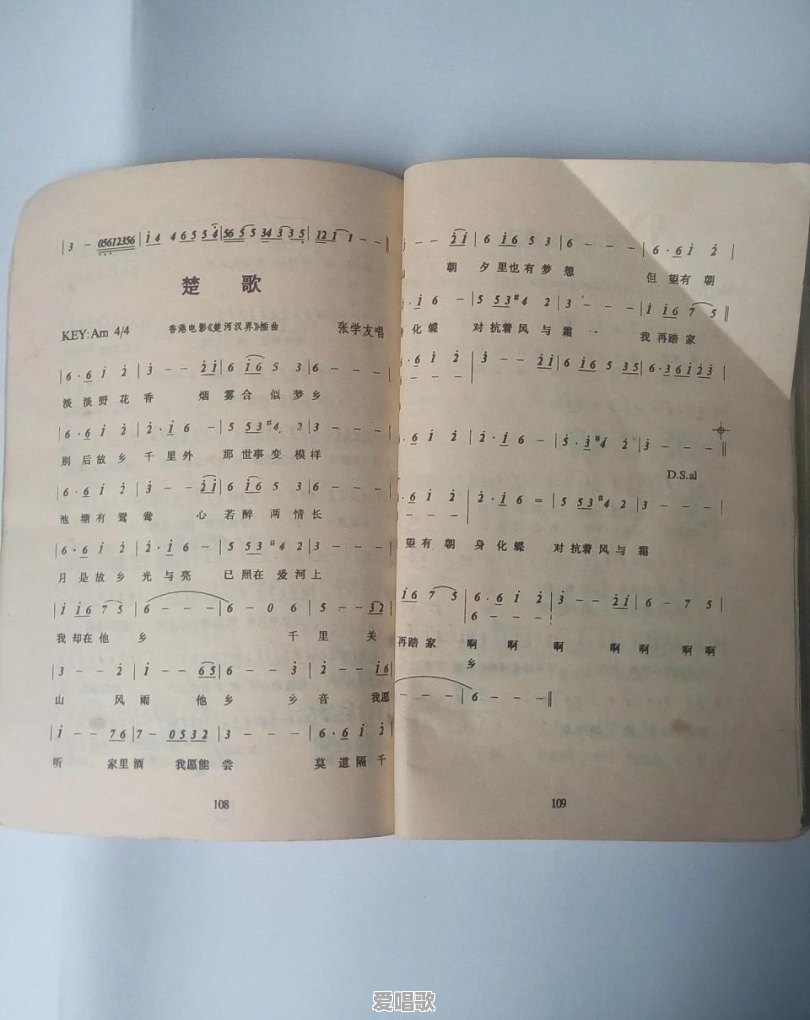 |3 - 05612356|i4 46554|56 55 34335|12i i - -‖
楚歌
KEY:Am 4/4 香港电影《楚河汉界》插曲 张学友唱
|6·6 i 2|3 - - 2i|6 i6 5 3|6 - - -|
淡淡野花香 烟雾合似梦乡
|6·6 i 2|2·i 6 -|5 53#4·2|3 - - -|
别后故乡千里外 那世事变模样
|6·6 i 2|3 - - 2i|6 i6 5 3|6 - - -|
池塘有鸳鸯 心若醉两情长
|6·6 i 2|2·i 6 -|5 53#4 2|3 - - -|
月是故乡光与亮 已照在爱河上
|i i6 7 5|6 - - -|6 - 0 6|5 - - 32|
我却在他乡 千里关
|3 - - 2|i - - 65|6 - - 3|2 - - i6|
山 风雨 他乡 乡音 我愿
|i - - 76|7 - 0532|3 - - -|6·6 i 2|
听 家里酒 我愿能尝 莫道隔千
108
i - - 2i|6 i6 5 3|6 - - -|6·6 i 2|
朝夕里也有梦想 但望有朝
·6 i 6 -|5 53#4 2|3 - - -|i i6 7 5|
身化蝶 对抗着风与霜 我再踏家
·6 i 2|2·i 6 -|5·3#4|3 - - -‖
D.S.al
·6 i 2|2·i 6 =|5 53#4 2|3 - - -|
望有朝 身化蝶 对抗着风与霜
i6 7 5|6·6 i 2|3 - - 2i|6 - 7 5|
6 - - -
再踏家 啊 啊 啊 啊啊 啊啊
乡
- - -|6 - - -‖
109
爱唱歌